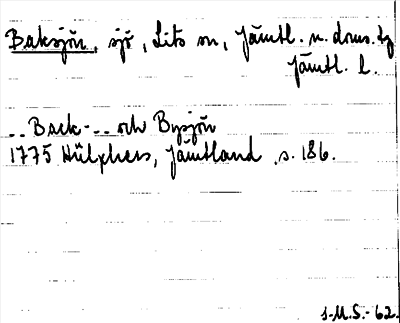 Baksjön, sjö, Lits sn, Jämtl. n. doms. tg
Jämtl. l.
-- Back- -- och Bysjön
1775 Hülphers, Jämtland, s. 186.
J.M.S. - 62.